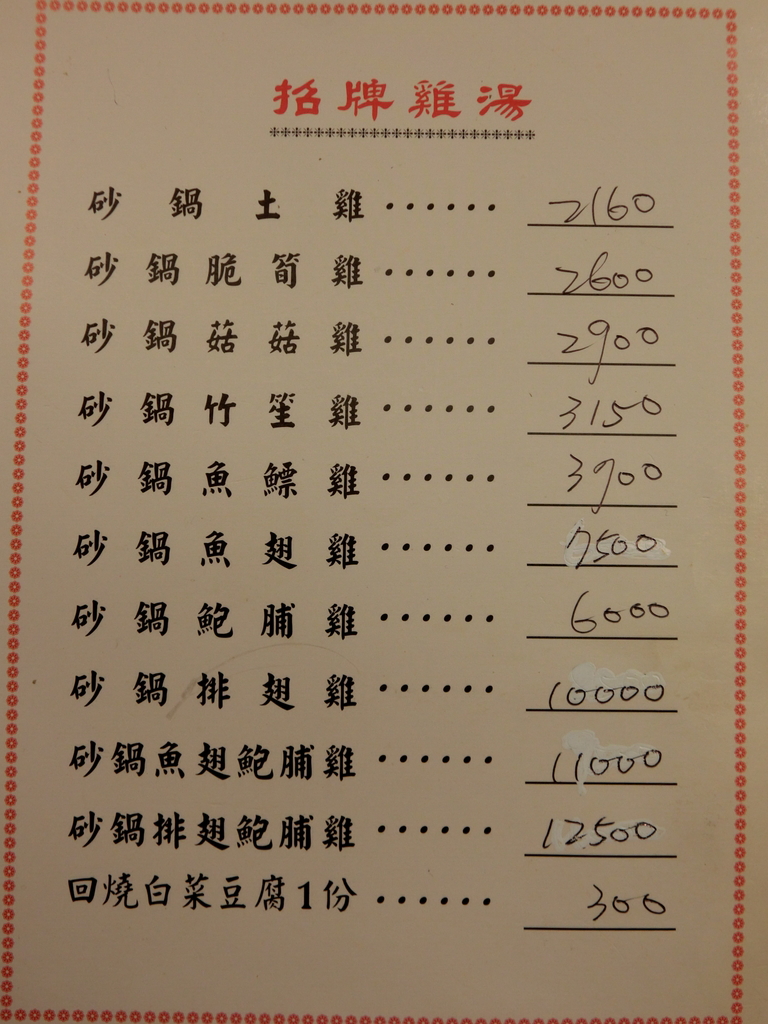 招牌雞湯
砂鍋土雞······ 2160
砂鍋脆筍雞······ 2600
砂鍋菇菇雞······ 2900
砂鍋竹笙雞······ 3150
砂鍋魚鰾雞······ 3900
砂鍋魚翅雞······ 7500
砂鍋鮑脯雞······ 6000
砂鍋排翅雞······ 10000
砂鍋魚翅鮑脯雞······ 11000
砂鍋排翅鮑脯雞······ 12500
回燒白菜豆腐1份······ 300